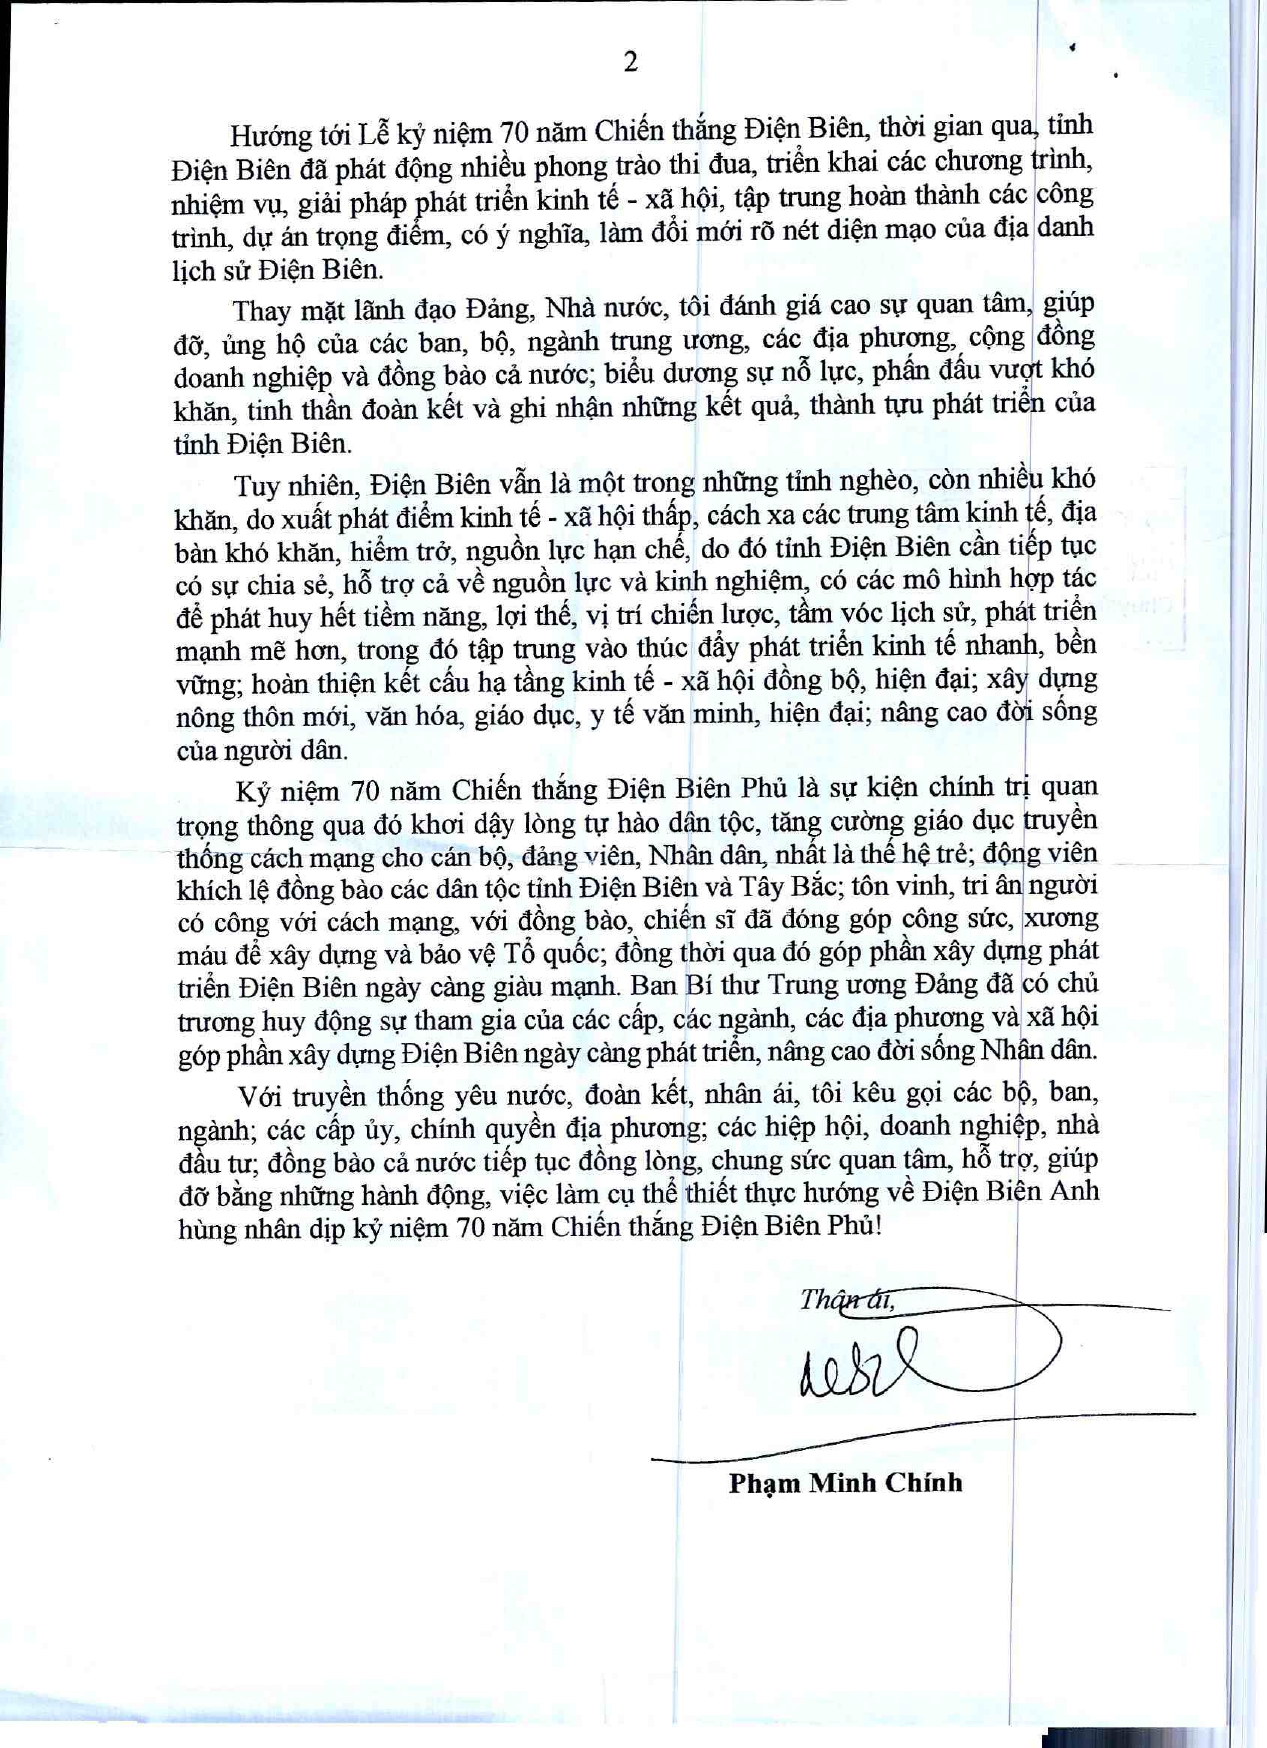 2
Hướng tới Lễ kỷ niệm 70 năm Chiến thắng Điện Biên, thời gian qua, tỉnh
Điện Biên đã phát động nhiều phong trào thi đua, triển khai các chương trình,
nhiệm vụ, giải pháp phát triển kinh tế - xã hội, tập trung hoàn thành các công
trình, dự án trọng điểm, có ý nghĩa, làm đổi mới rõ nét diện mạo của địa danh
lịch sử Điện Biên.
Thay mặt lãnh đạo Đảng, Nhà nước, tôi đánh giá cao sự quan tâm, giúp
đỡ, ủng hộ của các ban, bộ, ngành trung ương, các địa phương, cộng đồng
doanh nghiệp và đồng bào cả nước; biểu dương sự nỗ lực, phấn đấu vượt khó
khăn, tinh thần đoàn kết và ghi nhận những kết quả, thành tựu phát triển của
tỉnh Điện Biên.
Tuy nhiên, Điện Biên vẫn là một trong những tỉnh nghèo, còn nhiều khó
khăn, do xuất phát điểm kinh tế - xã hội thấp, cách xa các trung tâm kinh tế, địa
bàn khó khăn, hiểm trở, nguồn lực hạn chế, do đó tỉnh Điện Biên cần tiếp tục
có sự chia sẻ, hỗ trợ cả về nguồn lực và kinh nghiệm, có các mô hình hợp tác
để phát huy hết tiềm năng, lợi thế, vị trí chiến lược, tầm vóc lịch sử, phát triển
mạnh mẽ hơn, trong đó tập trung vào thúc đẩy phát triển kinh tế nhanh, bền
vững; hoàn thiện kết cấu hạ tầng kinh tế - xã hội đồng bộ, hiện đại; xây dựng
nông thôn mới, văn hóa, giáo dục, y tế văn minh, hiện đại; nâng cao đời sống
của người dân.
Kỷ niệm 70 năm Chiến thắng Điện Biên Phủ là sự kiện chính trị quan
trọng thông qua đó khơi dậy lòng tự hào dân tộc, tăng cường giáo dục truyền
thống cách mạng cho cán bộ, đảng viên, Nhân dân, nhất là thế hệ trẻ; động viên
khích lệ đồng bào các dân tộc tỉnh Điện Biên và Tây Bắc; tôn vinh, tri ân người
có công với cách mạng, với đồng bào, chiến sĩ đã đóng góp công sức, xương
máu để xây dựng và bảo vệ Tổ quốc; đồng thời qua đó góp phần xây dựng phát
triển Điện Biên ngày càng giàu mạnh. Ban Bí thư Trung ương Đảng đã có chủ
trương huy động sự tham gia của các cấp, các ngành, các địa phương và xã hội
góp phần xây dựng Điện Biên ngày càng phát triển, nâng cao đời sống Nhân dân.
Với truyền thống yêu nước, đoàn kết, nhân ái, tôi kêu gọi các bộ, ban,
ngành; các cấp ủy, chính quyền địa phương; các hiệp hội, doanh nghiệp, nhà
đầu tư; đồng bào cả nước tiếp tục đồng lòng, chung sức quan tâm, hỗ trợ, giúp
đỡ bằng những hành động, việc làm cụ thể thiết thực hướng về Điện Biên Anh
hùng nhân dịp kỷ niệm 70 năm Chiến thắng Điện Biên Phủ!
Thân ái,
Phạm Minh Chính